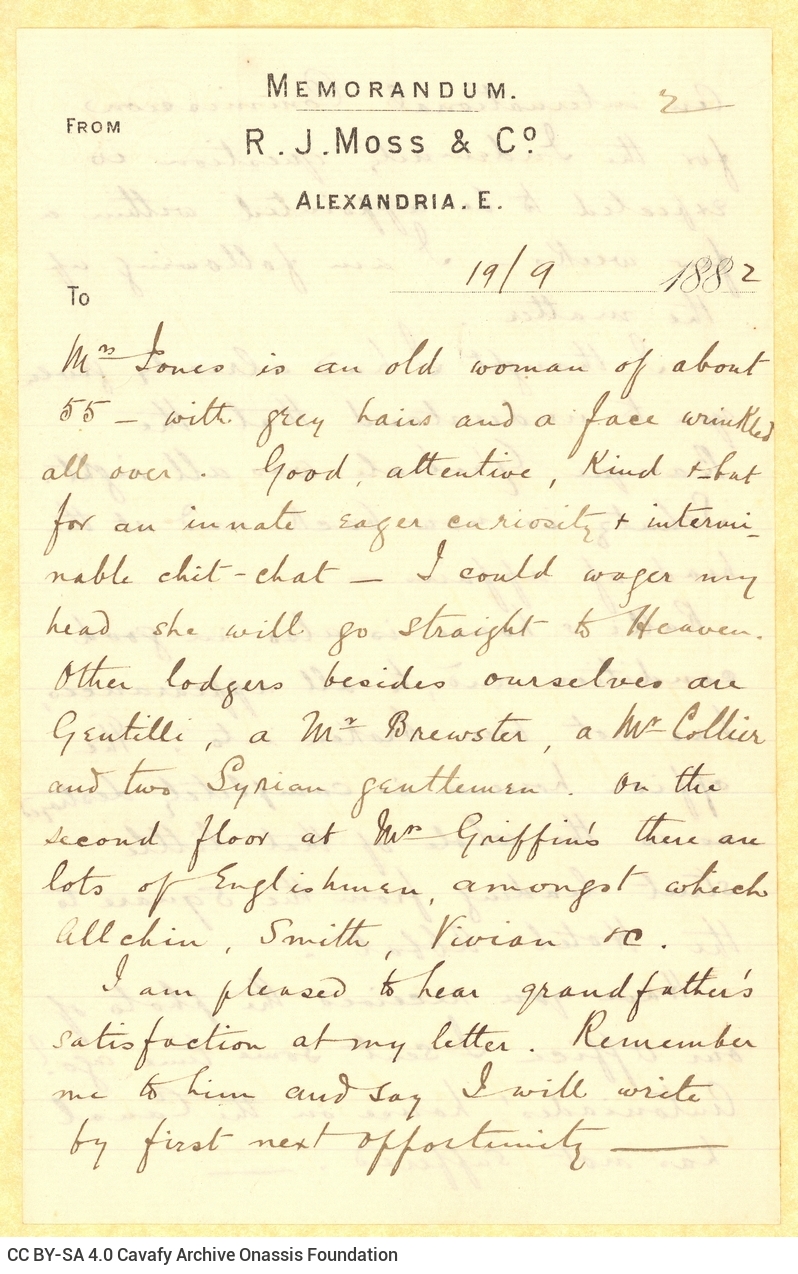 MEMORANDUM.
2
FROM
R. J. MOSS & Cº
ALEXANDRIA. E.
19/9 1882
To
Mrs Jones is an old woman of about
55 — with grey hairs and a face wrinkled
all over. Good, attentive, kind & but
for an innate eager curiosity & intermi-
nable chit-chat — I could wager my
head she will go straight to Heaven.
Other lodgers besides ourselves are
Gentilli, a Mr Brewster, a Mr Collier
and two Syrian gentlemen. On the
second floor at Mrs Griffin's there are
lots of Englishmen, amongst which
Allchin, Smith, Vivian &c.
I am pleased to hear grandfather's
satisfaction at my letter. Remember
me to him and say I will write
by first next opportunity —
CC BY-SA 4.0 Cavafy Archive Onassis Foundation